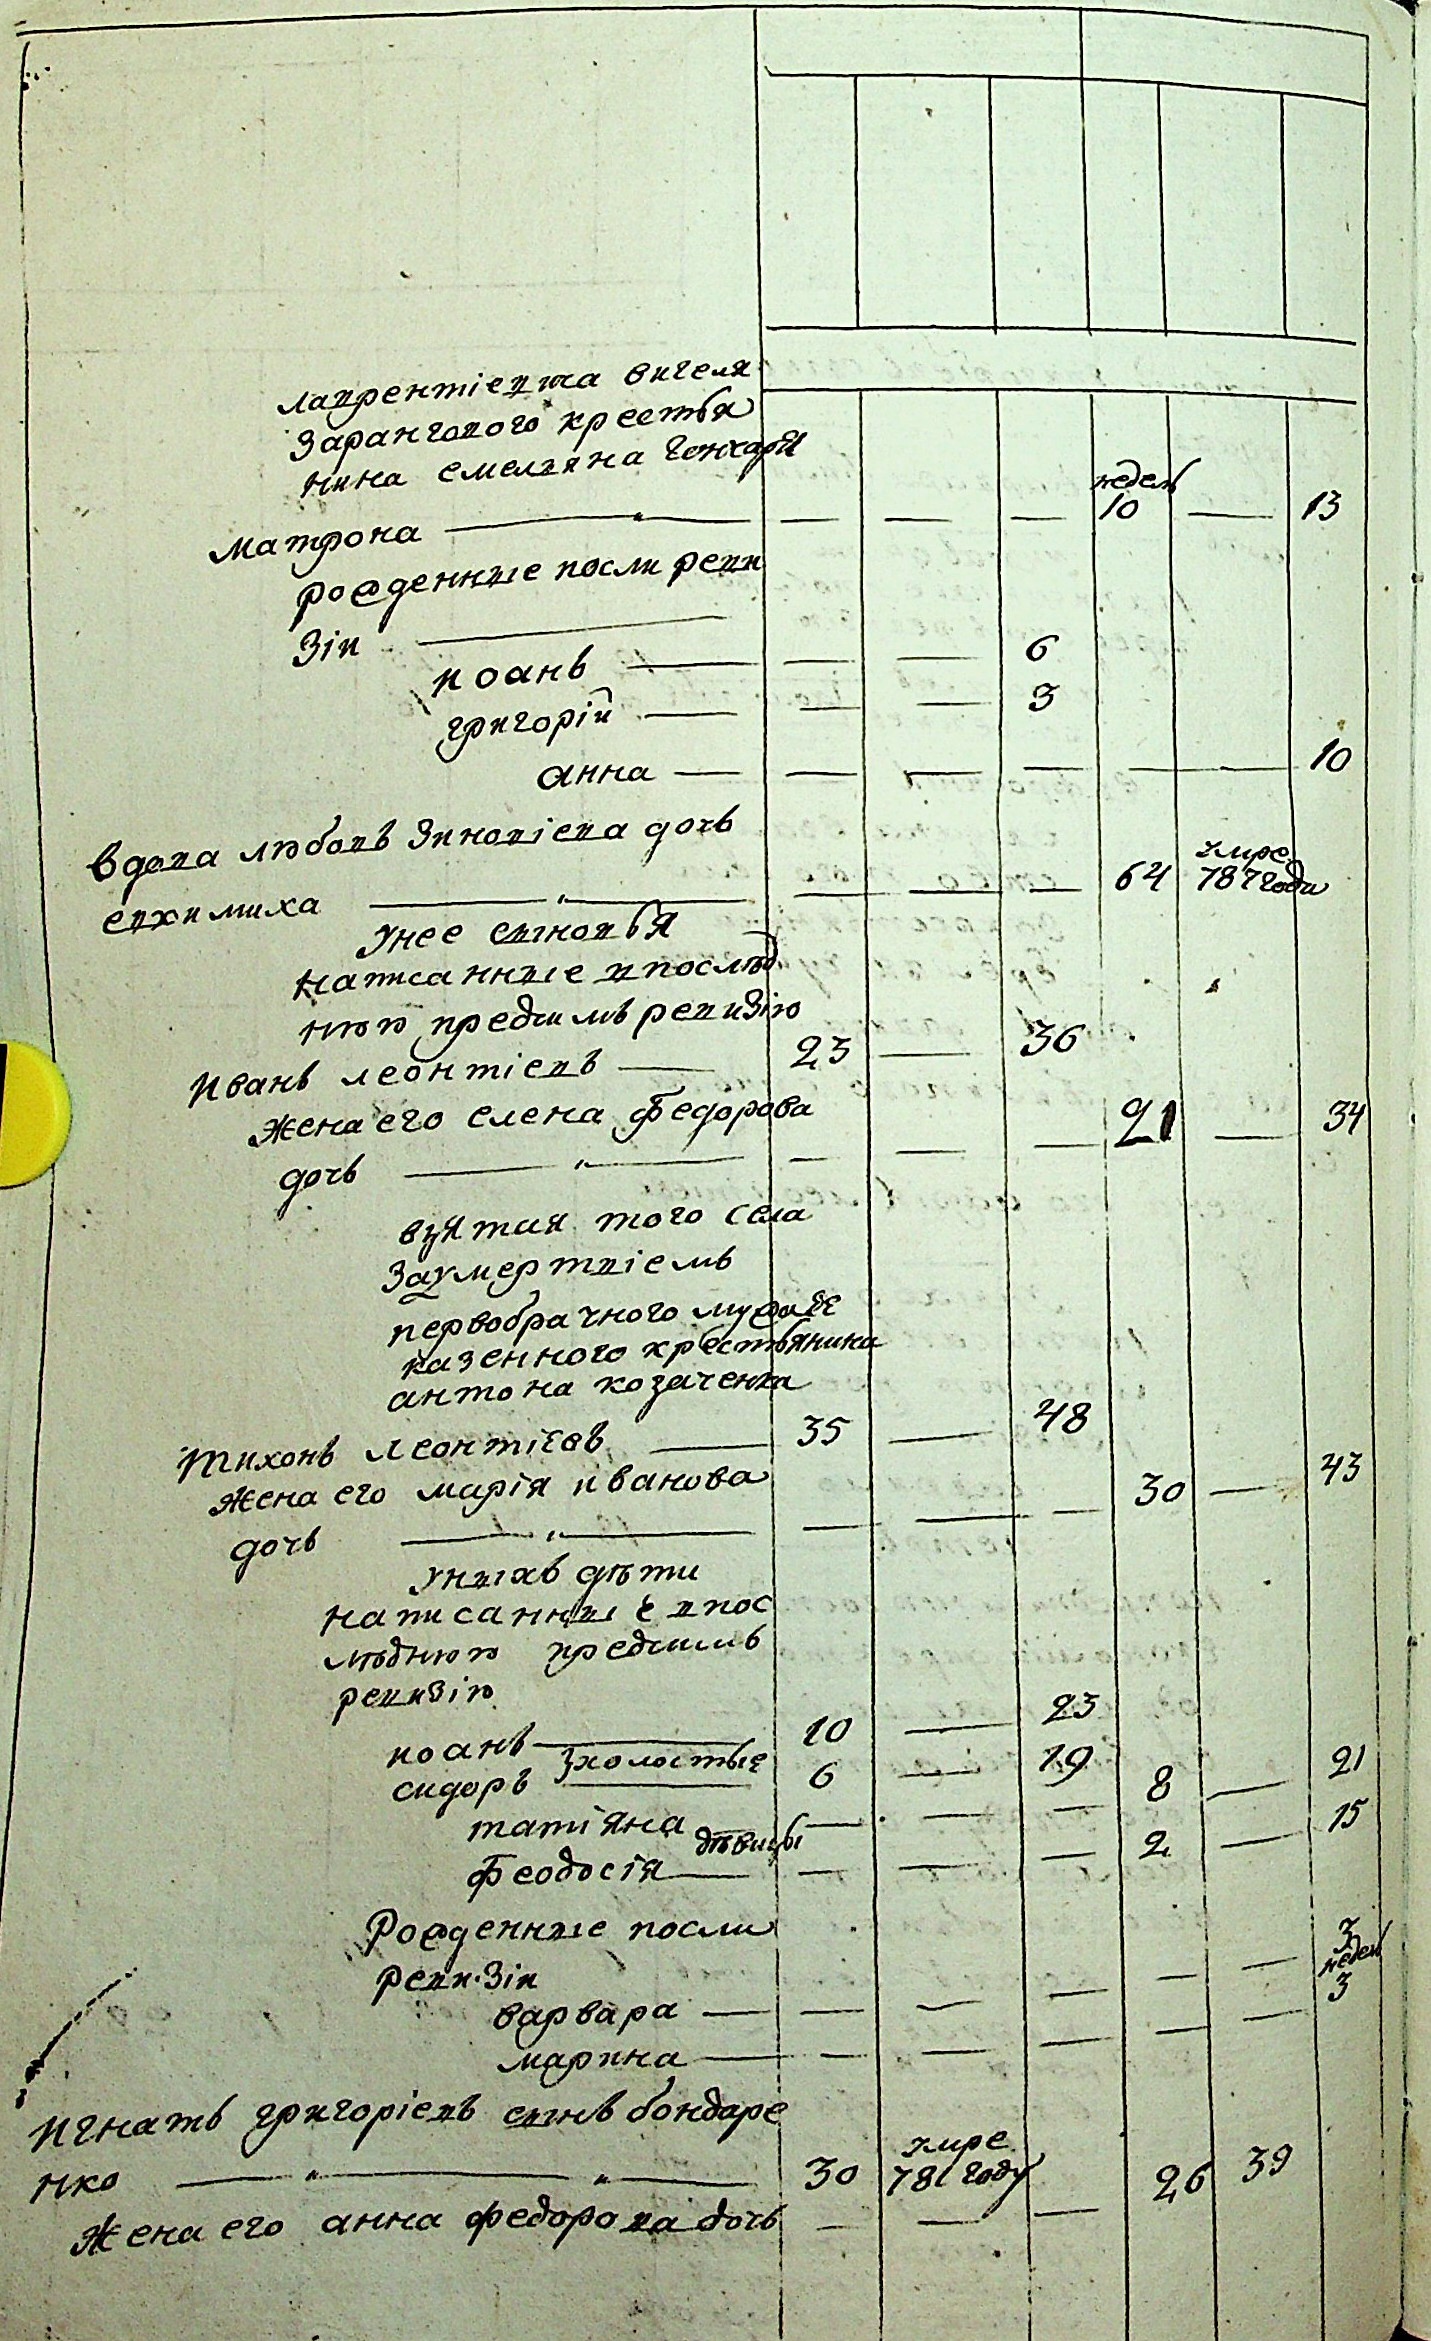 лаврентіевича вигеля
зарангового крестья
нина емельяна гончара
недель
матрона 10 13
рожденные посли реви
зіи
иоанъ 6
григорій 3
анна 10
вдова любовь Зиновіева дочь
умре
евхимиха 64 787 года
унее сыновья
написанные впослѣд
нюю предъ симъ ревизію
иванъ леонтіевъ 23 36
жена его елена федорова
дочь 21 34
взятая того села
за умертвіемъ
первобрачного мужа ее
казенного крестьянина
антона козаченка
тихонъ леонтіевъ 35 48
жена его марія иванова
дочь 30 43
унихъ дѣти
написанные впос
лѣднюю предъ симъ
ревизію
иоанъ 10 23
холостые
сидоръ 6 19
татіяна 8 21
дѣвицы
феодосія 2 15
Рожденные посли
реви зіи
варвара 3
недель
марина 3
игнатъ григоріевъ сынъ бондаре
умре
нко 30 781 году
жена его анна федорова дочь 26 39